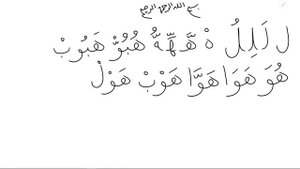 بسم الله الرحمن الرحيم
ل لَلِلُ هْ هَهِّهُّ هُبُوَّ هَبُوبْ
هُوَ هَوَا هَوَّا هَوْبْ هَوْلْ